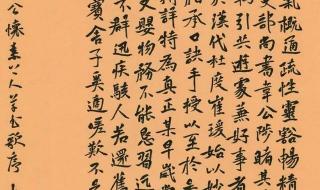 氣概通疏性靈豁暢精
吏部尚書韋公陟睹其
引共遊處兼好事者
漢代杜度崔瑗始以妙
相承口訣手授以至於
詳特為真正某早歲
又嬰物務不能恳習迄
不群迅疾駭人若還舊
賓舍子奚適嗟歎不
公懷素上人草書歌序